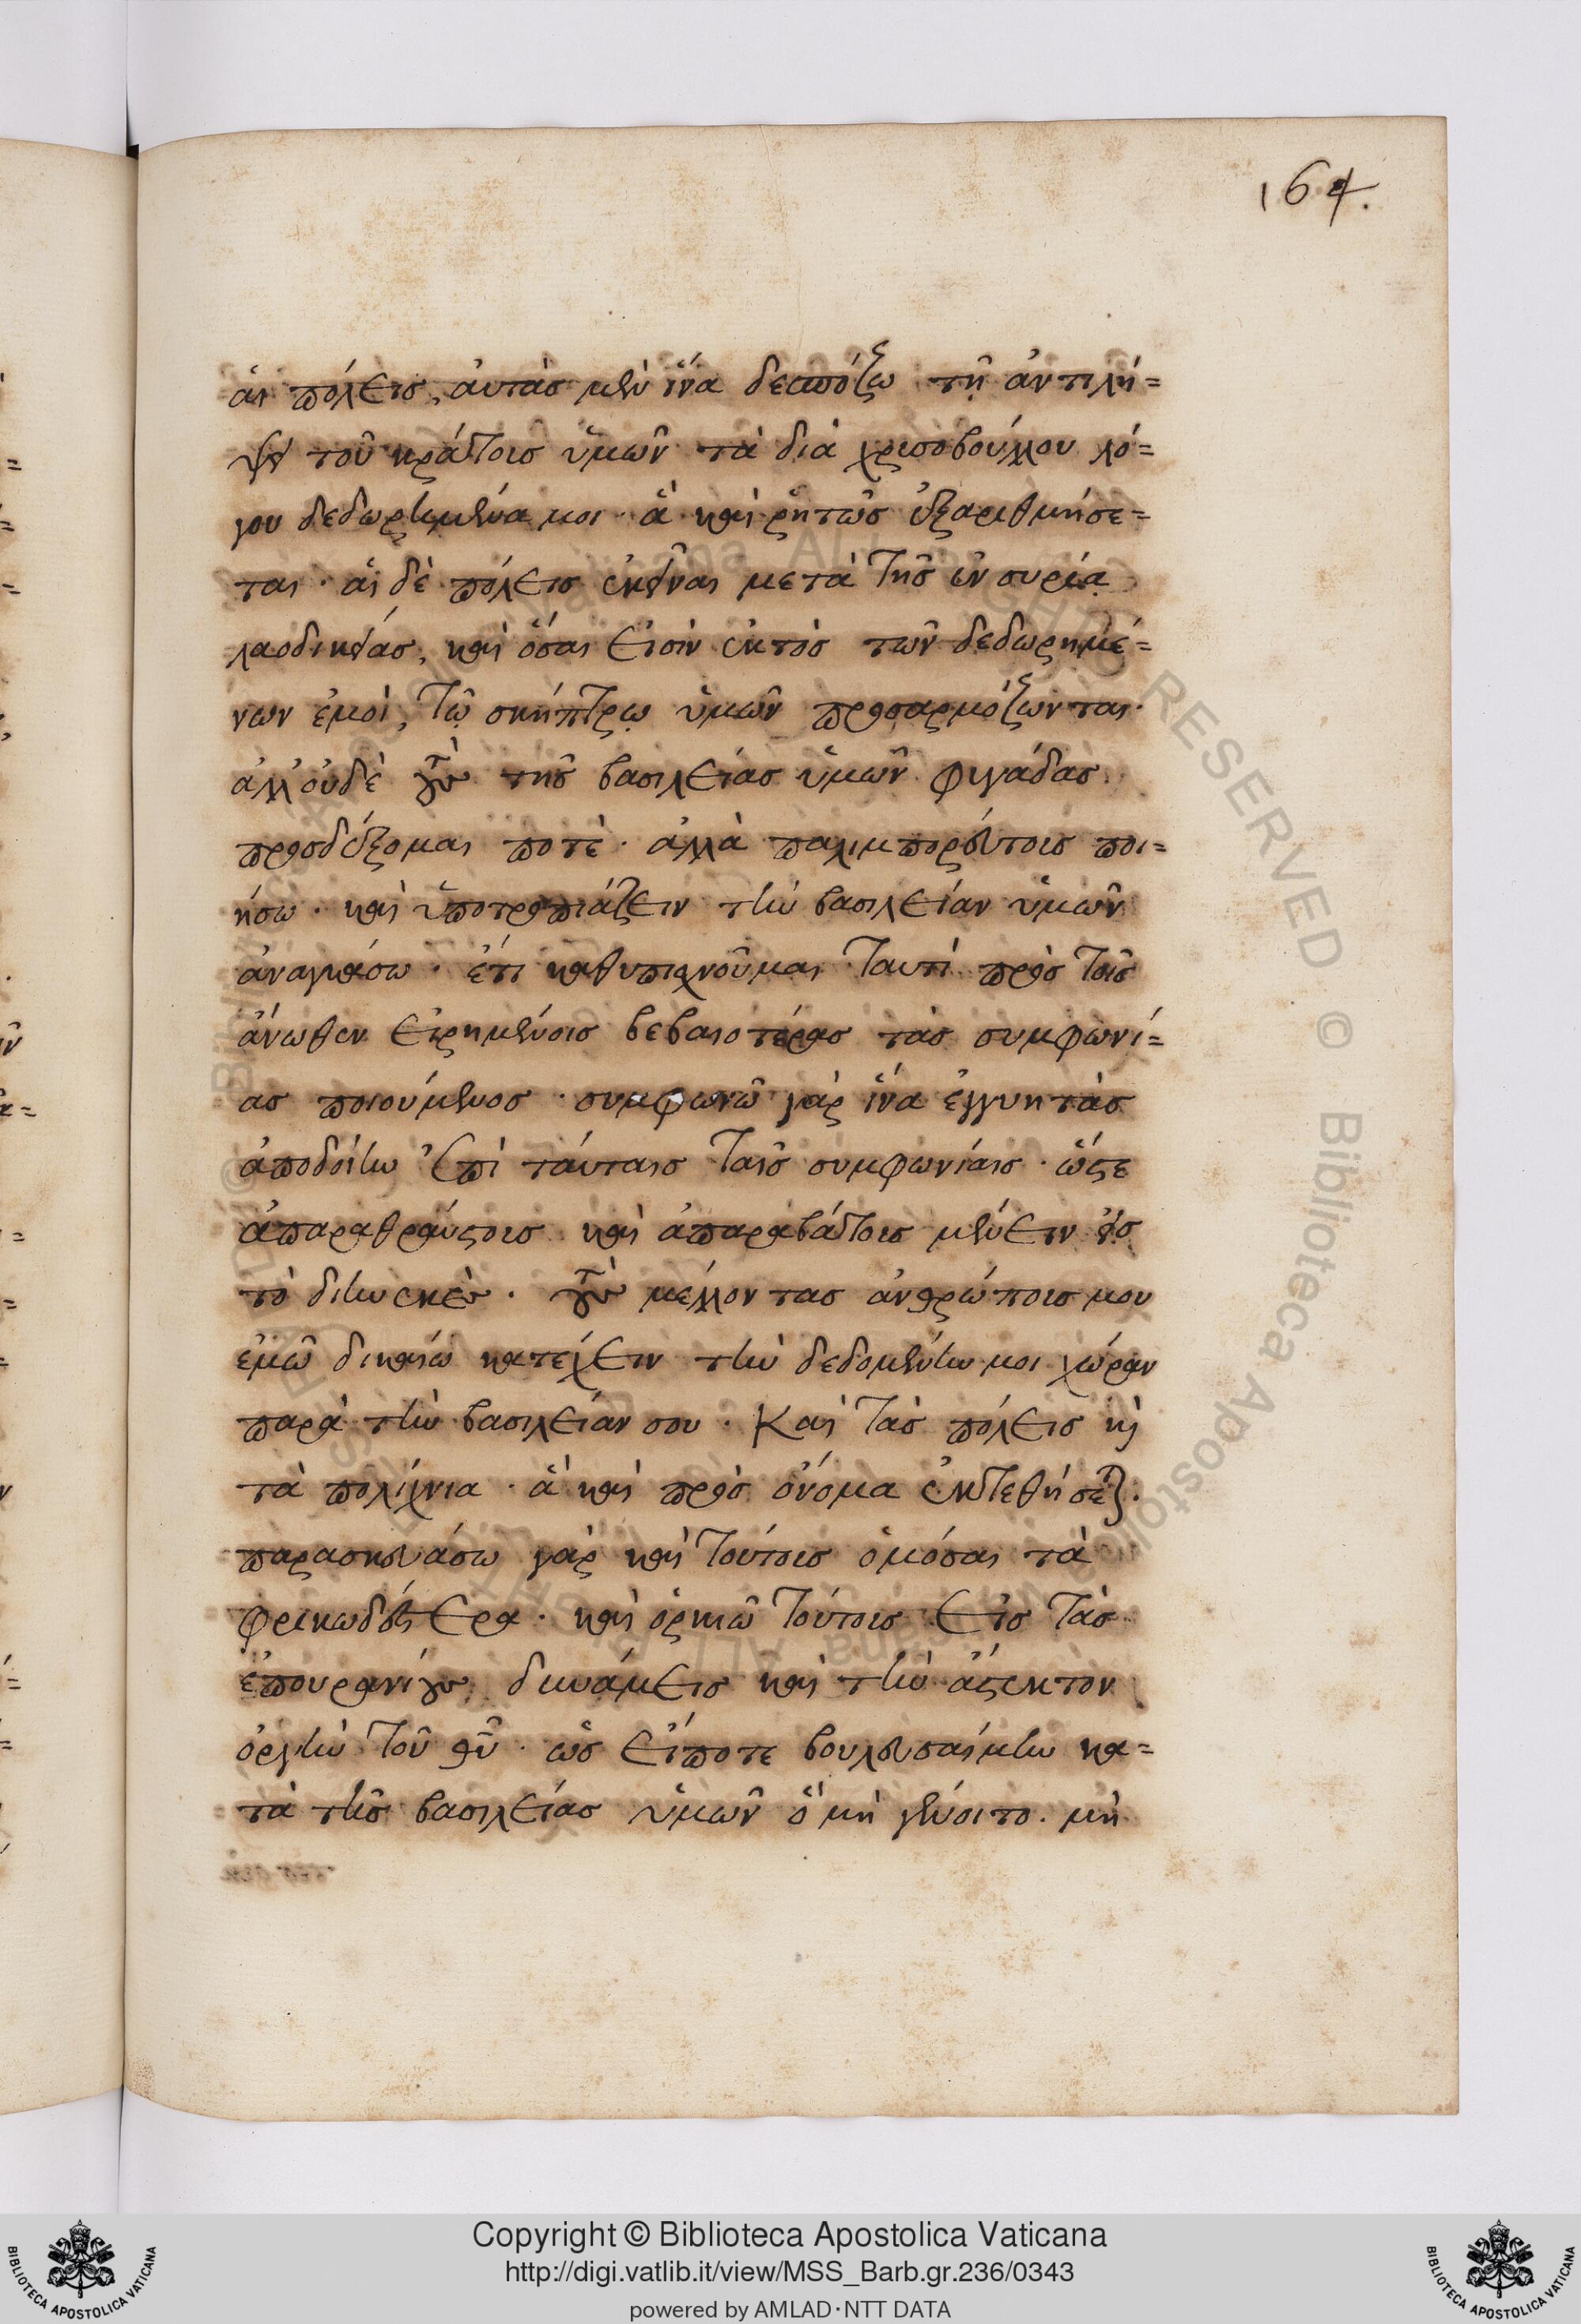 164.
ἁι πόλεις, ἀυτὰσ μὲν ἵνα δεσπόζω τῇ ἀντιλή=
ψει τοῦ κράτουσ ὑμῶν τὰ διὰ χρισοβούλλου λό=
γου δεδωρημένα μοι · ἃ καὶ ῥητῶσ ἐξαριθμήσε=
ται · ἁι δὲ πόλεισ ἐκεῖναι μετὰ τῆσ ἐν συρίᾳ
λαοδικείασ, καὶ ὅσαι εἰσὶν ἐκτὸσ τῶν δεδωρημέ=
νων ἐμοὶ, τῷ σκήπτρῳ ὑμῶν προσαρμόζωνται·
ἀλλ' ὀυδὲ τοὺσ τῆσ βασιλείασ ὑμῶν φιγάδασ
προσδέξομαι ποτὲ · ἀλλὰ παλιμπορεύτουσ ποι=
ήσω · καὶ ὑποτροπιάζειν τὴν βασιλείαν ὑμῶν
ἀναγκάσω · ἔτι καθυπισχνοῦμαι ταυτὶ πρὸσ τοῖσ
ἄνωθεν εἰρημένοισ βεβαιοτέρασ τὰσ συμφωνί=
ασ ποιούμενοσ · συμφωνῶ γὰρ ἵνα ἐγγυητὰσ
ἀποδοίην ἐπὶ τάυταισ ταῖσ συμφωνίαισ · ὥστε
ἀπαραθράυστουσ καὶ ἀπαραβάτουσ μένειν εἰσ
τὸ διηνεκὲσ · τοὺσ μέλλοντασ ἀνθρώπουσ μου
ἐμῶ δικαίω κατέχειν τὴν δεδομένην μοι χώραν
παρὰ τὴν βασιλείαν σου · Καὶ τὰσ πόλεισ καὶ
τὰ πολίχνια · ἃ καὶ πρὸσ ὀνόμα ἐκτεθήσεται.
παρασκευάσω γὰρ καὶ τούτουσ ὀμόσαι τὰ
φρικωδέστερα · καὶ ὁρκιῶ τούτουσ εἰσ τὰσ
ἐπουρανίουσ δυνάμεισ καὶ τὴν ἄστεκτον
ὀργὴν τοῦ θῦ · ὡσ εἴποτε βουλευσαίμην κα=
τὰ τῆσ βασιλείασ ὑμῶν ὃ μὴ γένοιτο. μὴ
Copyright © Biblioteca Apostolica Vaticana
http://digi.vatlib.it/view/MSS_Barb.gr.236/0343
powered by AMLAD·NTT DATA
BIBLIOTECA APOSTOLICA VATICANA
BIBLIOTECA APOSTOLICA VATICANA